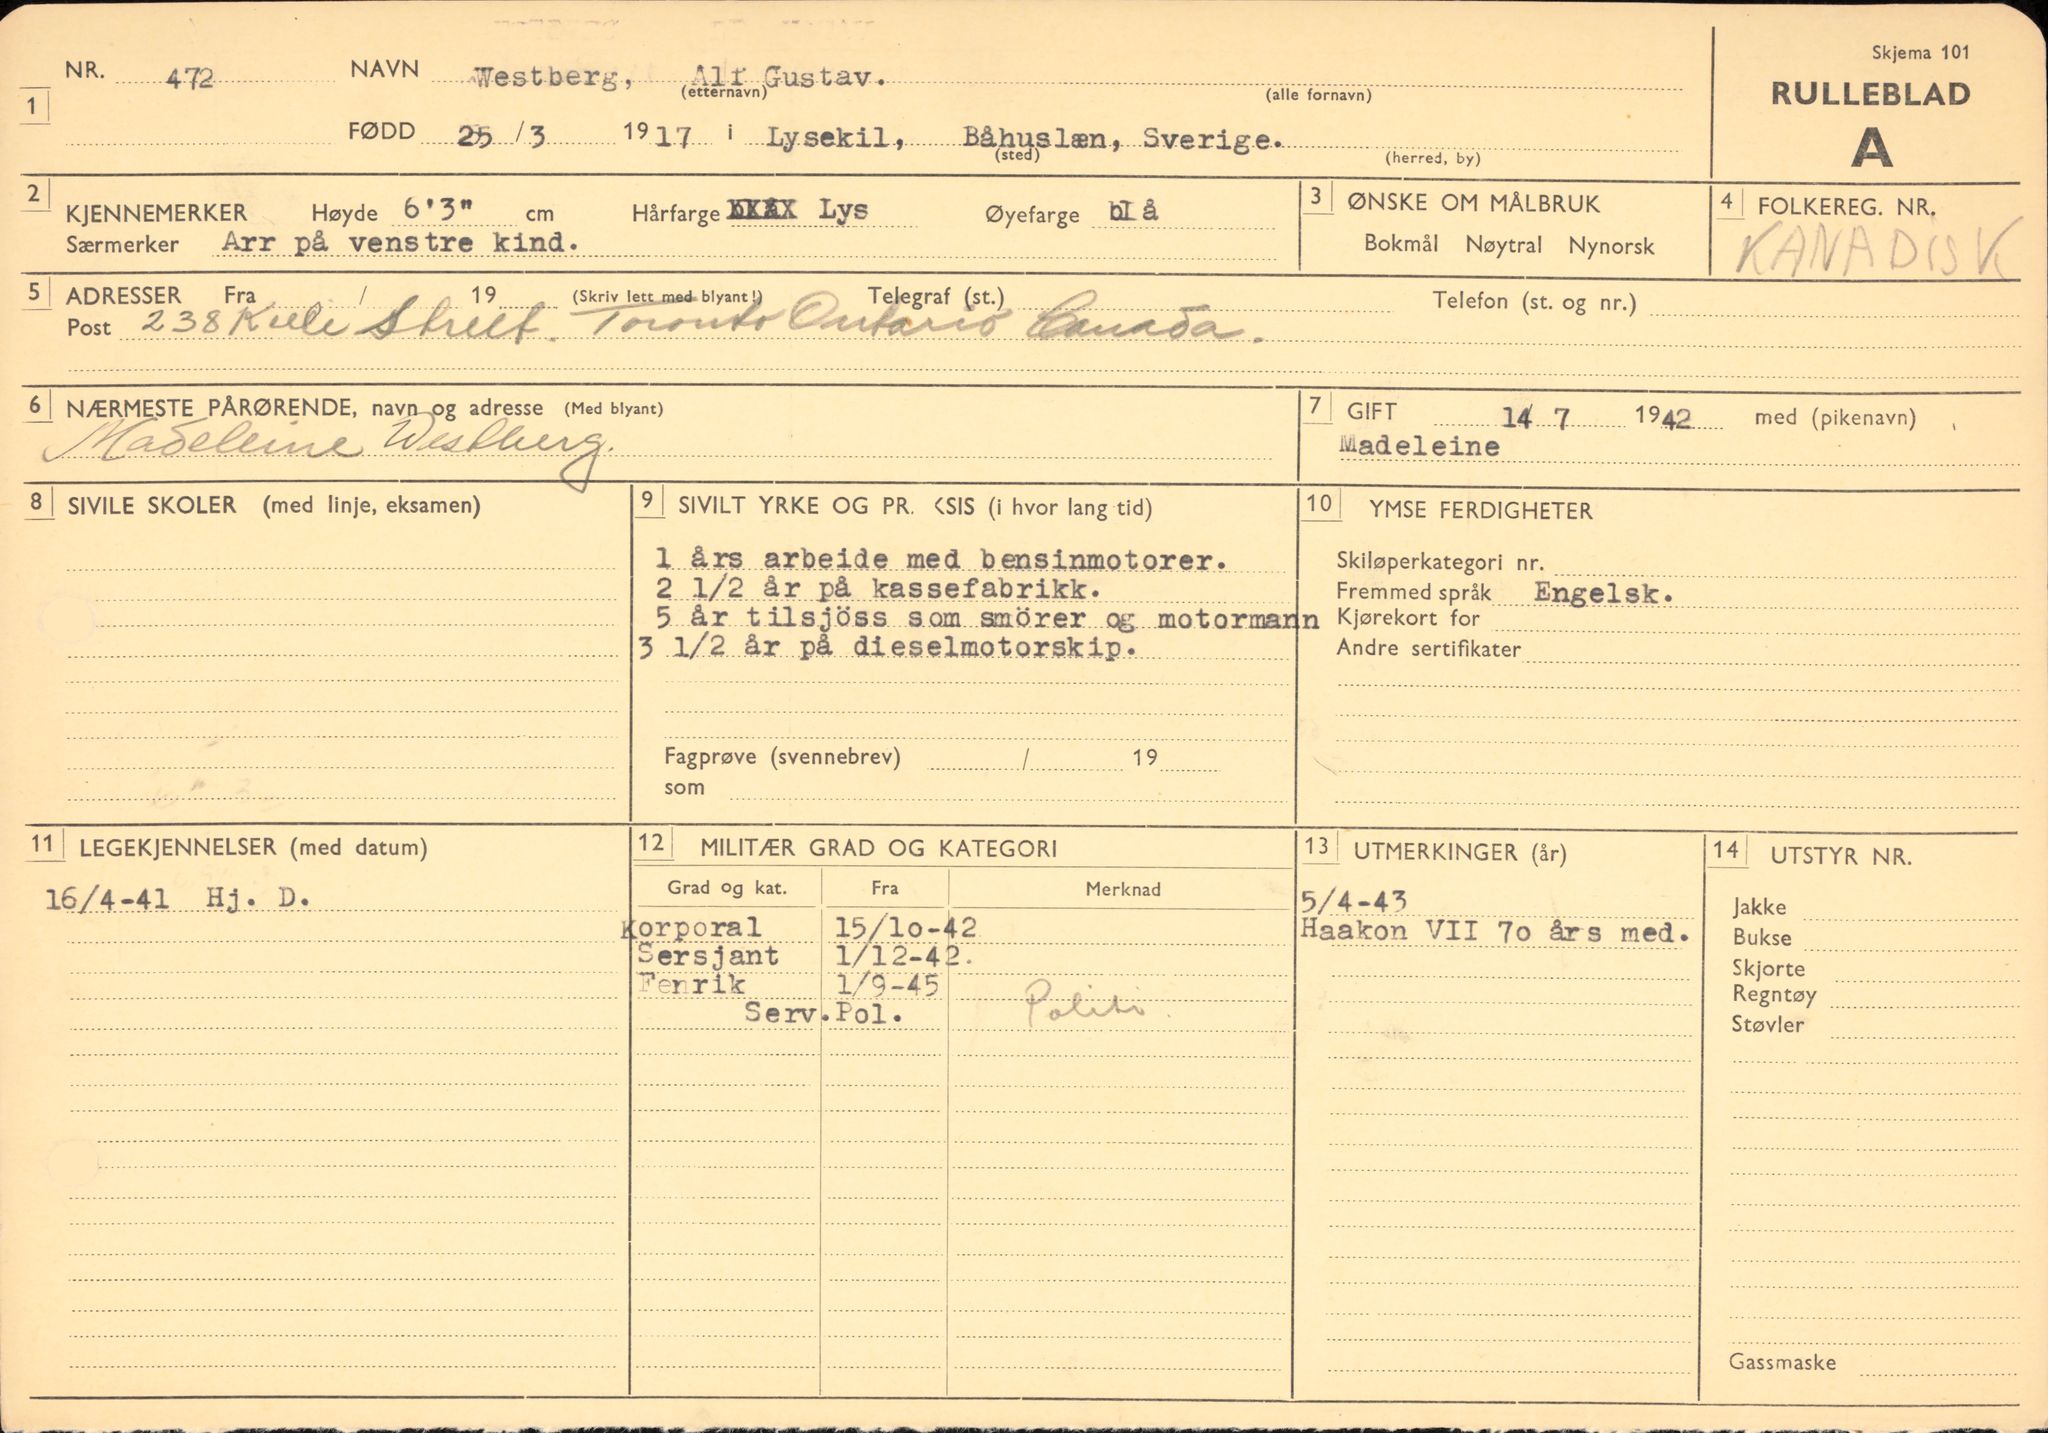 Skjema 101
RULLEBLAD
A
1 NR. 472 NAVN Westberg, Alf Gustav.
(etternavn) (alle fornavn)
FØDD 25/3 1917 i Lysekil, Båhuslæn, Sverige.
(sted) (herred, by)
2 KJENNEMERKER Høyde 6'3" cm Hårfarge Lys Øyefarge blå
Særmerker Arr på venstre kind.
3 ØNSKE OM MÅLBRUK
Bokmål Nøytral Nynorsk
4 FOLKEREG. NR.
KANADISK
5 ADRESSER Fra / 19 (Skriv lett med blyant!) Telegraf (st.) Telefon (st. og nr.)
Post 238 Keele Street. Toronto Ontario Canada.
6 NÆRMESTE PÅRØRENDE, navn og adresse (Med blyant)
Madeleine Westberg.
7 GIFT 14/7 1942 med (pikenavn)
Madeleine
8 SIVILE SKOLER (med linje, eksamen)
9 SIVILT YRKE OG PR. KSIS (i hvor lang tid)
1 års arbeide med bensinmotorer.
2 1/2 år på kassefabrikk.
5 år tilsjöss som smörer og motormann
3 1/2 år på dieselmotorskip.
Fagprøve (svennebrev) / 19
som
10 YMSE FERDIGHETER
Skiløperkategori nr.
Fremmed språk Engelsk.
Kjørekort for
Andre sertifikater
11 LEGEKJENNELSER (med datum)
16/4-41 Hj. D.
12 MILITÆR GRAD OG KATEGORI
Grad og kat. Fra Merknad
Korporal 15/1o-42
Sersjant 1/12-42.
Fenrik 1/9-45
Serv.Pol. Politi
13 UTMERKINGER (år)
5/4-43
Haakon VII 7o års med.
14 UTSTYR NR.
Jakke
Bukse
Skjorte
Regntøy
Støvler
Gassmaske